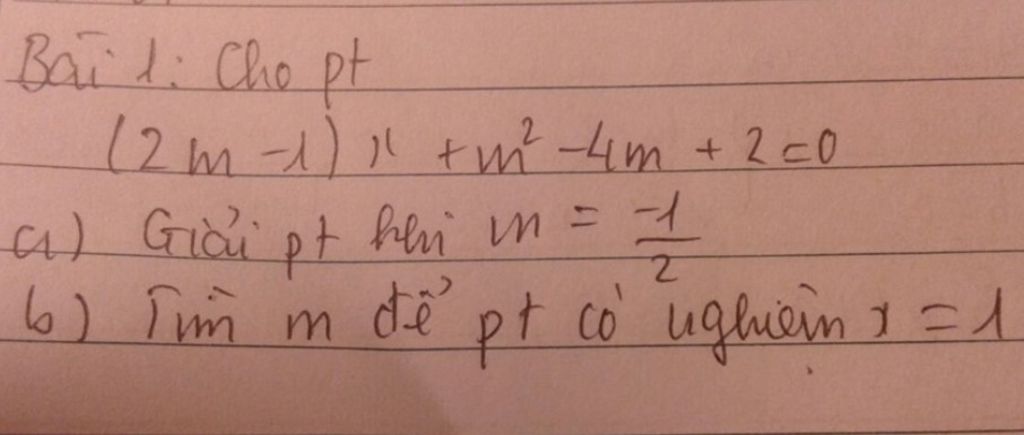 Bài 1: Cho pt
(2m -1) x + m² - 4m + 2 = 0
a) Giải pt khi m = -1/2
b) Tìm m để pt có nghiệm x = 1